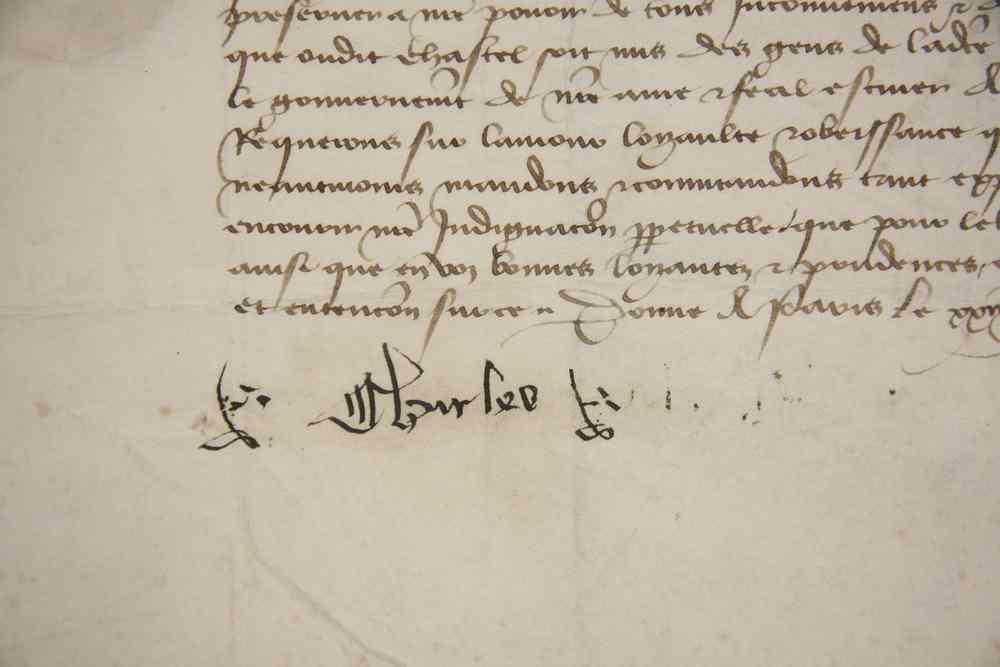 preserver a nre povoir de tous Inconveniens &
que oudit Chastel soit mis des gens de lad
le gouvernemt de nre ame & feal escuier
Requerons sur lamour loyaulte & obeissance q
neantmoins mandons & commandons tant exp
encourir nre Indignacon perpetuelle que pour le
ainsi que en voz bonnes loyautez & prudences
et entencon sur ce Donne A Paris le xxi
Charles